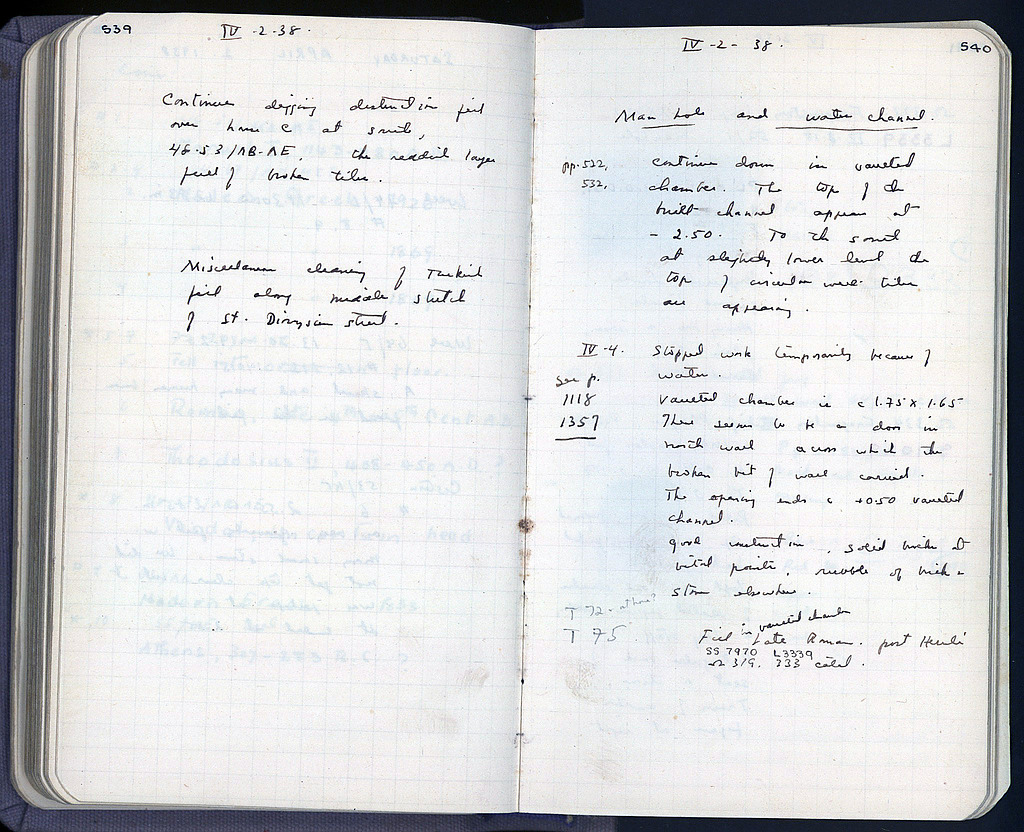 539
IV -2-38.
Continue digging destruction fill
over house C at south,
48-53/AB-AE, the reddish layer
full of broken tiles.
Miscellaneous cleaning of Turkish
fill along middle stretch
of St. Dionysius street.
540
IV -2- 38.
Man hole and water channel.
pp. 532, Continue down in vaulted
532, chamber. The top of the
built channel appears at
- 2.50. To the south
at slightly lower level the
top of circular well tiles
are appearing.
IV-4. Stopped work temporarily because of
water.
see p.
1118 Vaulted chamber is c 1.75 x 1.65
1357 There seems to be a door in
north wall across which the
broken bit of wall carried.
The opening ends c +0.50 vaulted
channel.
good construction, solid bricks at
vital points, rubble of brick &
stone elsewhere.
T 72 - at house?
T 75 Fill in vaulted chamber Late Roman. post Heruli
SS 7970 L3339
319. 333 catal.